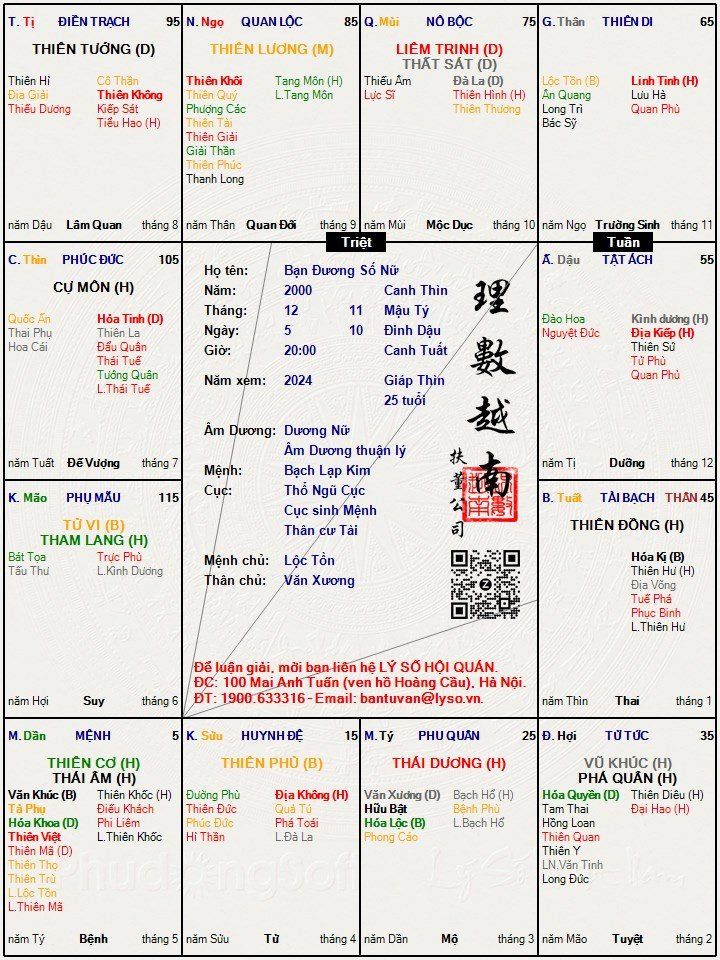 T. Tị ĐIỀN TRẠCH 95
THIÊN TƯỚNG (D)
Thiên Hỉ
Địa Giải
Thiếu Dương
Cô Thần
Thiên Không
Kiếp Sát
Tiểu Hao (H)
năm Dậu Lâm Quan tháng 8
N. Ngọ QUAN LỘC 85
THIÊN LƯƠNG (M)
Thiên Khôi
Thiên Quý
Phượng Các
Thiên Tài
Thiên Giải
Giải Thần
Thiên Phúc
Thanh Long
Tang Môn (H)
L.Tang Môn
năm Thân Quan Đới tháng 9
Q. Mùi NÔ BỘC 75
LIÊM TRINH (D)
THẤT SÁT (D)
Thiếu Âm
Lực Sĩ
Đà La (D)
Thiên Hình (H)
Thiên Thương
năm Mùi Mộc Dục tháng 10
G. Thân THIÊN DI 65
Lộc Tồn (B)
Ân Quang
Long Trì
Bác Sỹ
Linh Tinh (H)
Lưu Hà
Quan Phù
năm Ngọ Trường Sinh tháng 11
C. Thìn PHÚC ĐỨC 105
CỰ MÔN (H)
Quốc Ấn
Thai Phụ
Hoa Cái
Hỏa Tinh (D)
Thiên La
Đẩu Quân
Thái Tuế
Tướng Quân
L.Thái Tuế
năm Tuất Đế Vượng tháng 7
Triệt
Tuần
Họ tên: Bạn Đương Số Nữ
Năm: 2000 Canh Thìn
Tháng: 12 11 Mậu Tý
Ngày: 5 10 Đinh Dậu
Giờ: 20:00 Canh Tuất
Năm xem: 2024 Giáp Thìn
25 tuổi
Âm Dương: Dương Nữ
Âm Dương thuận lý
Mệnh: Bạch Lạp Kim
Cục: Thổ Ngũ Cục
Cục sinh Mệnh
Thân cư Tài
Mệnh chủ: Lộc Tồn
Thân chủ: Văn Xương
理數越南
扶董公司
Để luận giải, mời bạn liên hệ LÝ SỐ HỘI QUÁN.
ĐC: 100 Mai Anh Tuấn (ven hồ Hoàng Cầu), Hà Nội.
ĐT: 1900.633316 - Email: bantuvan@lyso.vn.
Ấ. Dậu TẬT ÁCH 55
Đào Hoa
Nguyệt Đức
Kình dương (H)
Địa Kiếp (H)
Thiên Sứ
Tử Phù
Quan Phủ
năm Tị Dưỡng tháng 12
K. Mão PHỤ MẪU 115
TỬ VI (B)
THAM LANG (H)
Bát Tọa
Tấu Thư
Trực Phù
L.Kình Dương
năm Hợi Suy tháng 6
B. Tuất TÀI BẠCH THÂN 45
THIÊN ĐỒNG (H)
Hóa Kị (B)
Thiên Hư (H)
Địa Võng
Tuế Phá
Phục Binh
L.Thiên Hư
năm Thìn Thai tháng 1
M. Dần MỆNH 5
THIÊN CƠ (H)
THÁI ÂM (H)
Văn Khúc (B)
Tả Phụ
Hóa Khoa (D)
Thiên Việt
Thiên Mã (D)
Thiên Thọ
Thiên Trù
L.Lộc Tồn
L.Thiên Mã
Thiên Khốc (H)
Điếu Khách
Phi Liêm
L.Thiên Khốc
năm Tý Bệnh tháng 5
K. Sửu HUYNH ĐỆ 15
THIÊN PHỦ (B)
Đường Phù
Thiên Đức
Phúc Đức
Hỉ Thần
Địa Không (H)
Quả Tú
Phá Toái
L.Đà La
năm Sửu Tử tháng 4
M. Tý PHU QUÂN 25
THÁI DƯƠNG (H)
Văn Xương (D)
Hữu Bật
Hóa Lộc (B)
Phong Cáo
Bạch Hổ (H)
Bệnh Phù
L.Bạch Hổ
năm Dần Mộ tháng 3
Đ. Hợi TỬ TỨC 35
VŨ KHÚC (H)
PHÁ QUÂN (H)
Hóa Quyền (D)
Tam Thai
Hồng Loan
Thiên Quan
Thiên Y
LN.Văn Tinh
Long Đức
Thiên Diêu (H)
Đại Hao (H)
năm Mão Tuyệt tháng 2